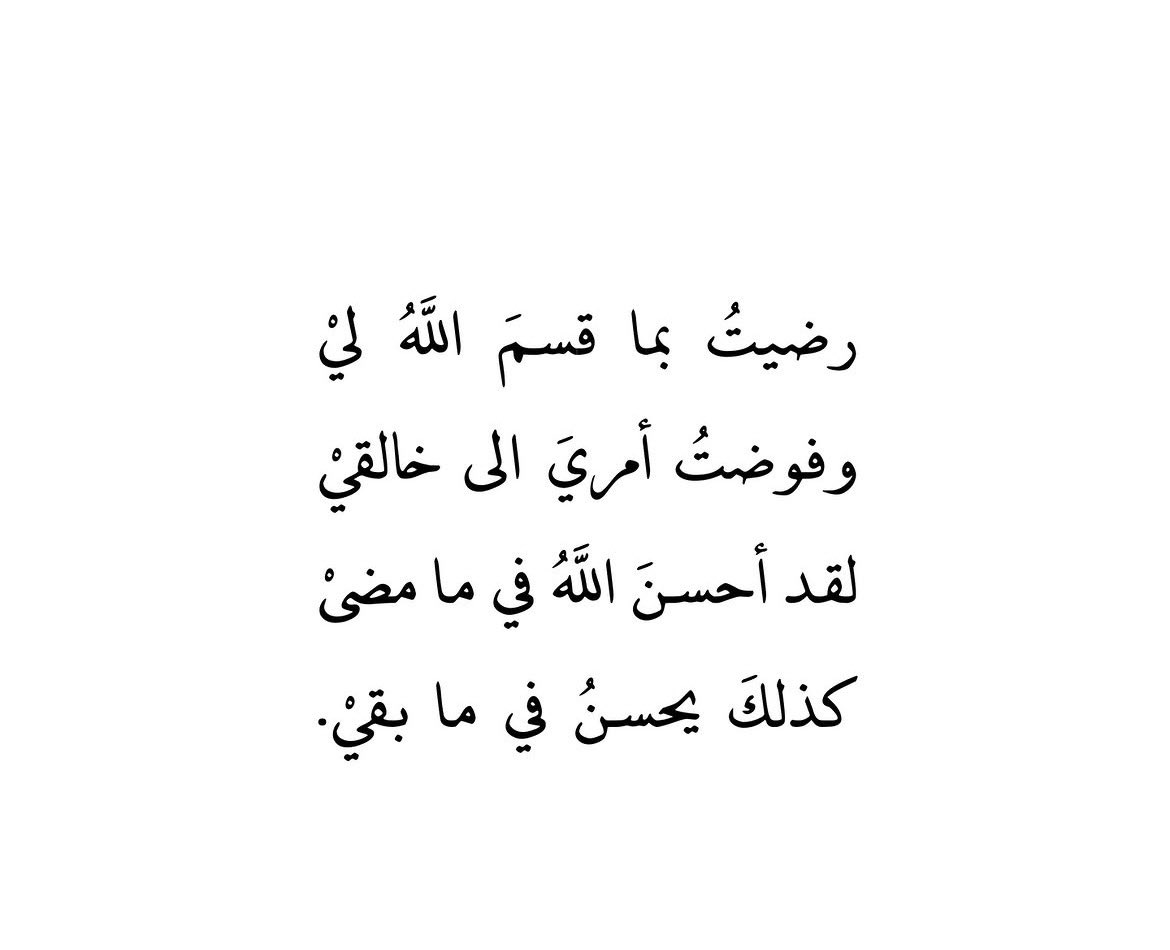 رضيتُ بما قسمَ اللَّهُ ليْ
وفوضتُ أمريَ الى خالقيْ
لقد أحسنَ اللَّهُ في ما مضىْ
كذلكَ يحسنُ في ما بقيْ.